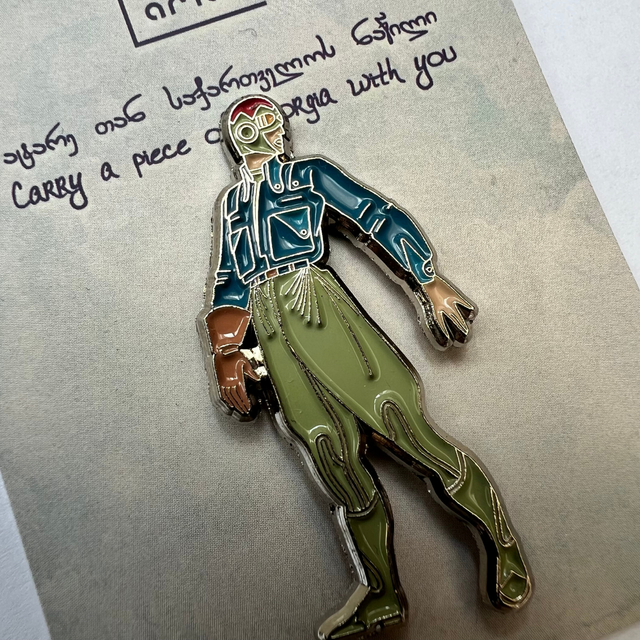 ატარე თან საქართველოს ნაწილი
Carry a piece of Georgia with you